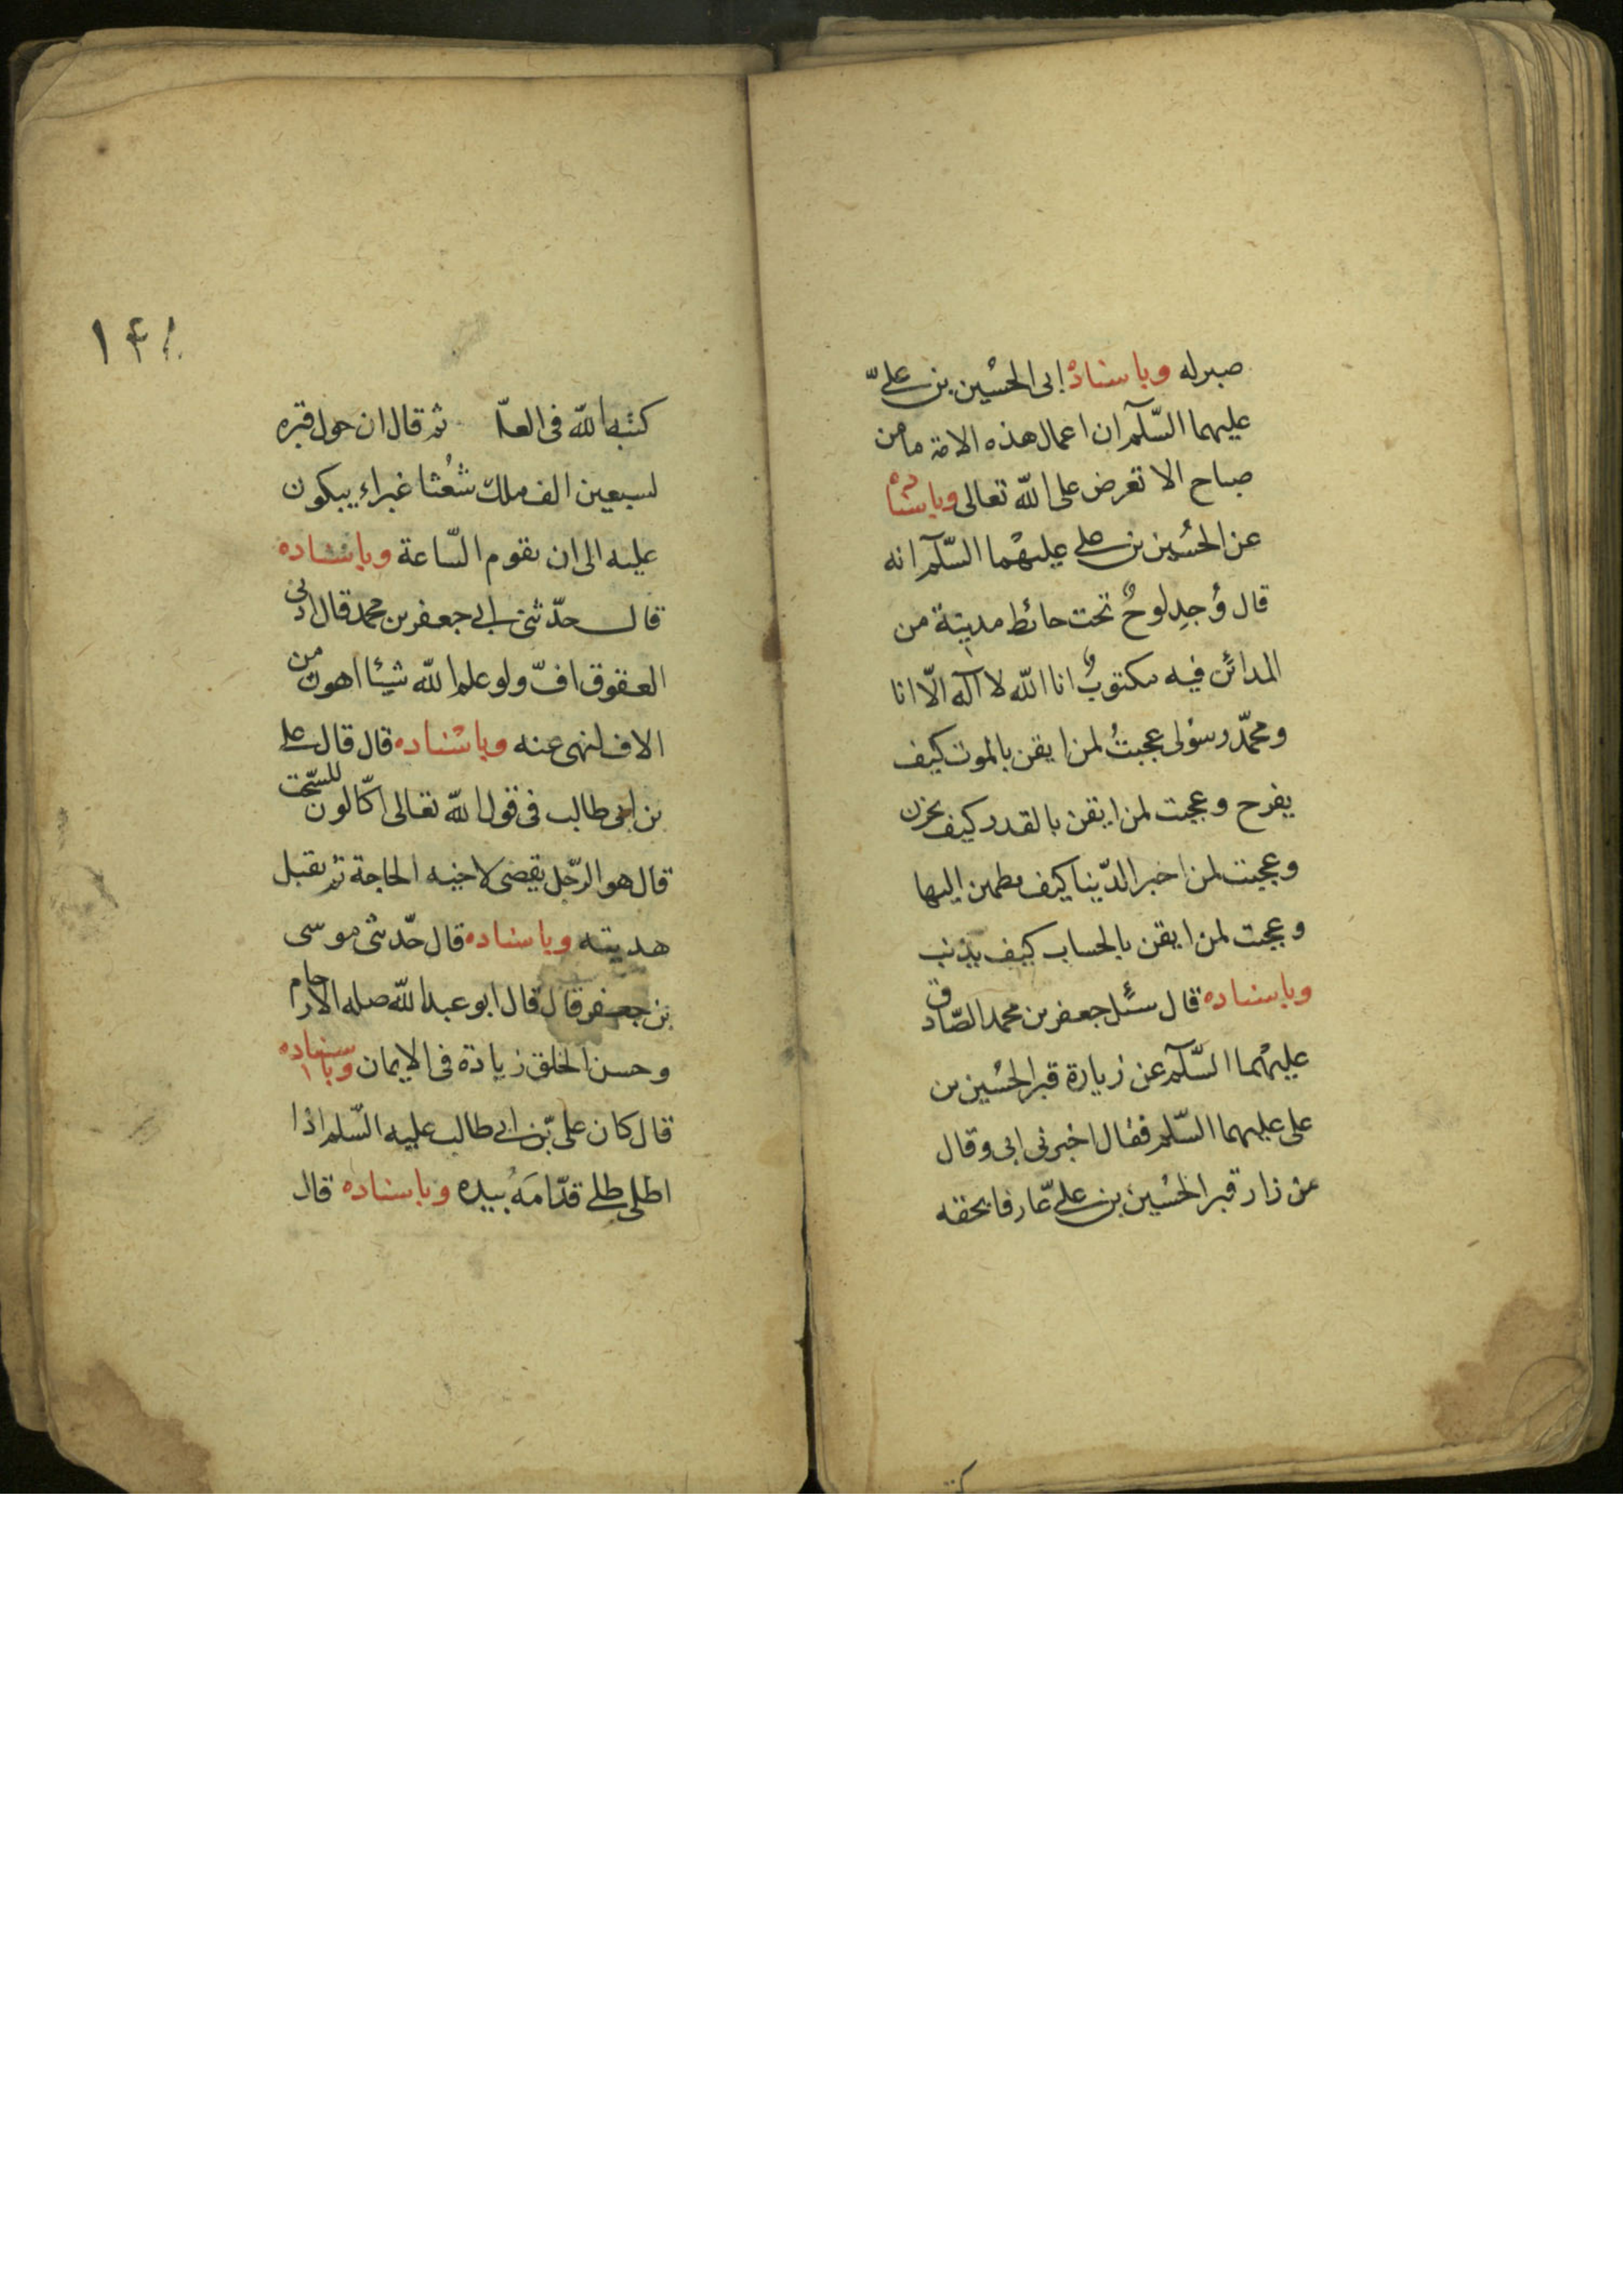 صبر له وباسناده الى الحسين بن علىّ
عليهما السّلآم ان اعمال هذه الامة ما من
صباح الا تعرض على اللّه تعالى وباسناده
عن الحُسين بن على عليهما السّلآم انه
قال وُجدِ لوحٌ تحت حائط مدينة من
المدائن فيه مكتوبٌ انا اللّه لا آله الّا انا
ومحمّد رسولى عجبتُ لمن ايقن بالموت كيف
يفرح وعجبت لمن ايقن بالقدر كيف يحزن
وعجبت لمن اخبر الدّينا كيف يطمئن اليها
وعجبت لمن ايقن بالحساب كيف يذنب
وباسناده قال سئل جعفر بن محمد الصّادق
عليهما السّلآم عن زيارة قبر الحسين بن
على عليهما السّلم فقال اخبرنى ابى وقال
من زار قبر الحسين بن علىّ عارفا بحقه
١٤٨
كتبه اللّه فى العلّا ثم قال ان حول قبره
لسبعين الف ملك شُعُثا غبراء يبكون
عليه الى ان يقوم السّاعة وباسناده
قال حدّثنى ابى جعفر بن محمد قال ادنى
العقوق افّ ولو علم اللّه شيئا اهون من
الاف لنهى عنه وباسناده قال قال على
بن ابى طالب فى قول اللّه تعالى اكّالون للسّحت
قال هو الرّجل يقضى لاخيه الحاجة ثم يقبل
هديته وباسناده قال حدّثنى موسى
بن جعفر قال قال ابو عبد اللّه صله الارحام
وحسن الخلق زيادة فى الايمان وباسناده
قال كان علىّ بن ابى طالب عليه السّلم اذا
اطلى طلى قدّامَهُ بيده وباسناده قال